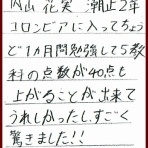 内山 花実 潮止2年
コロンビアに入ってちょう
ど1カ月間勉強して5教
科の点数が40点も
上がることが出来て
うれしかったしすごく
驚きました!!